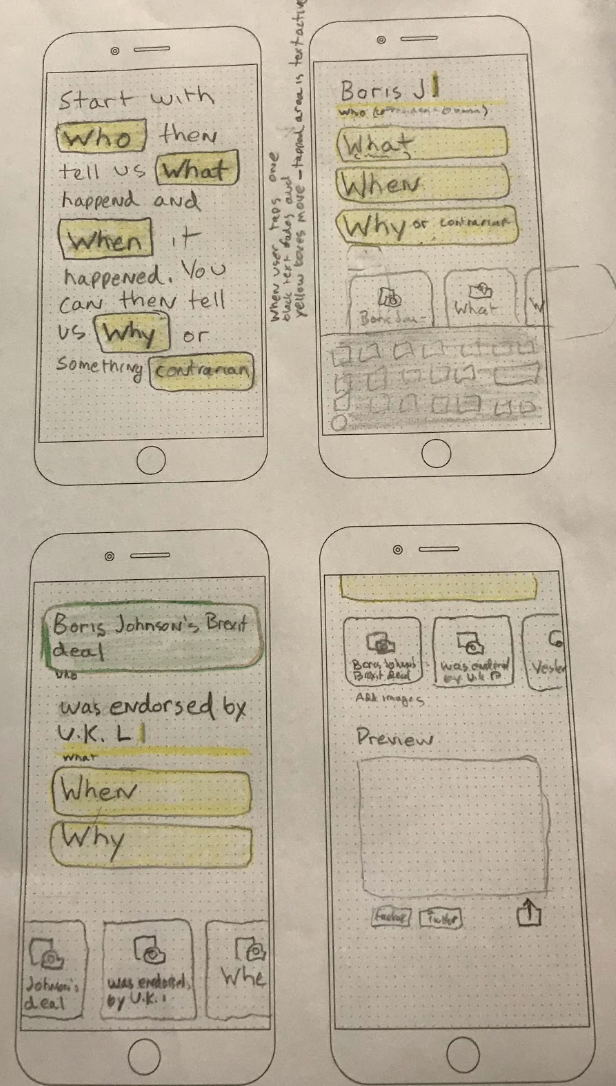 Start with
Who then
tell us What
happend and
When it
happened. You
can then tell
us Why or
something contrarian
When user taps one
black text fades and
yellow boxes move - tapped area is text active
Boris J
Who
What
When
Why or contrarian
What
W
Boris Johnson's Brexit
deal
Who
was endorsed by
U.K. L
What
When
Why
Johnson's
deal
was endorsed
by U.K.
Whe
Brexit deal
was endorsed
by U.K.
Yester
Add images
Preview
Twitter